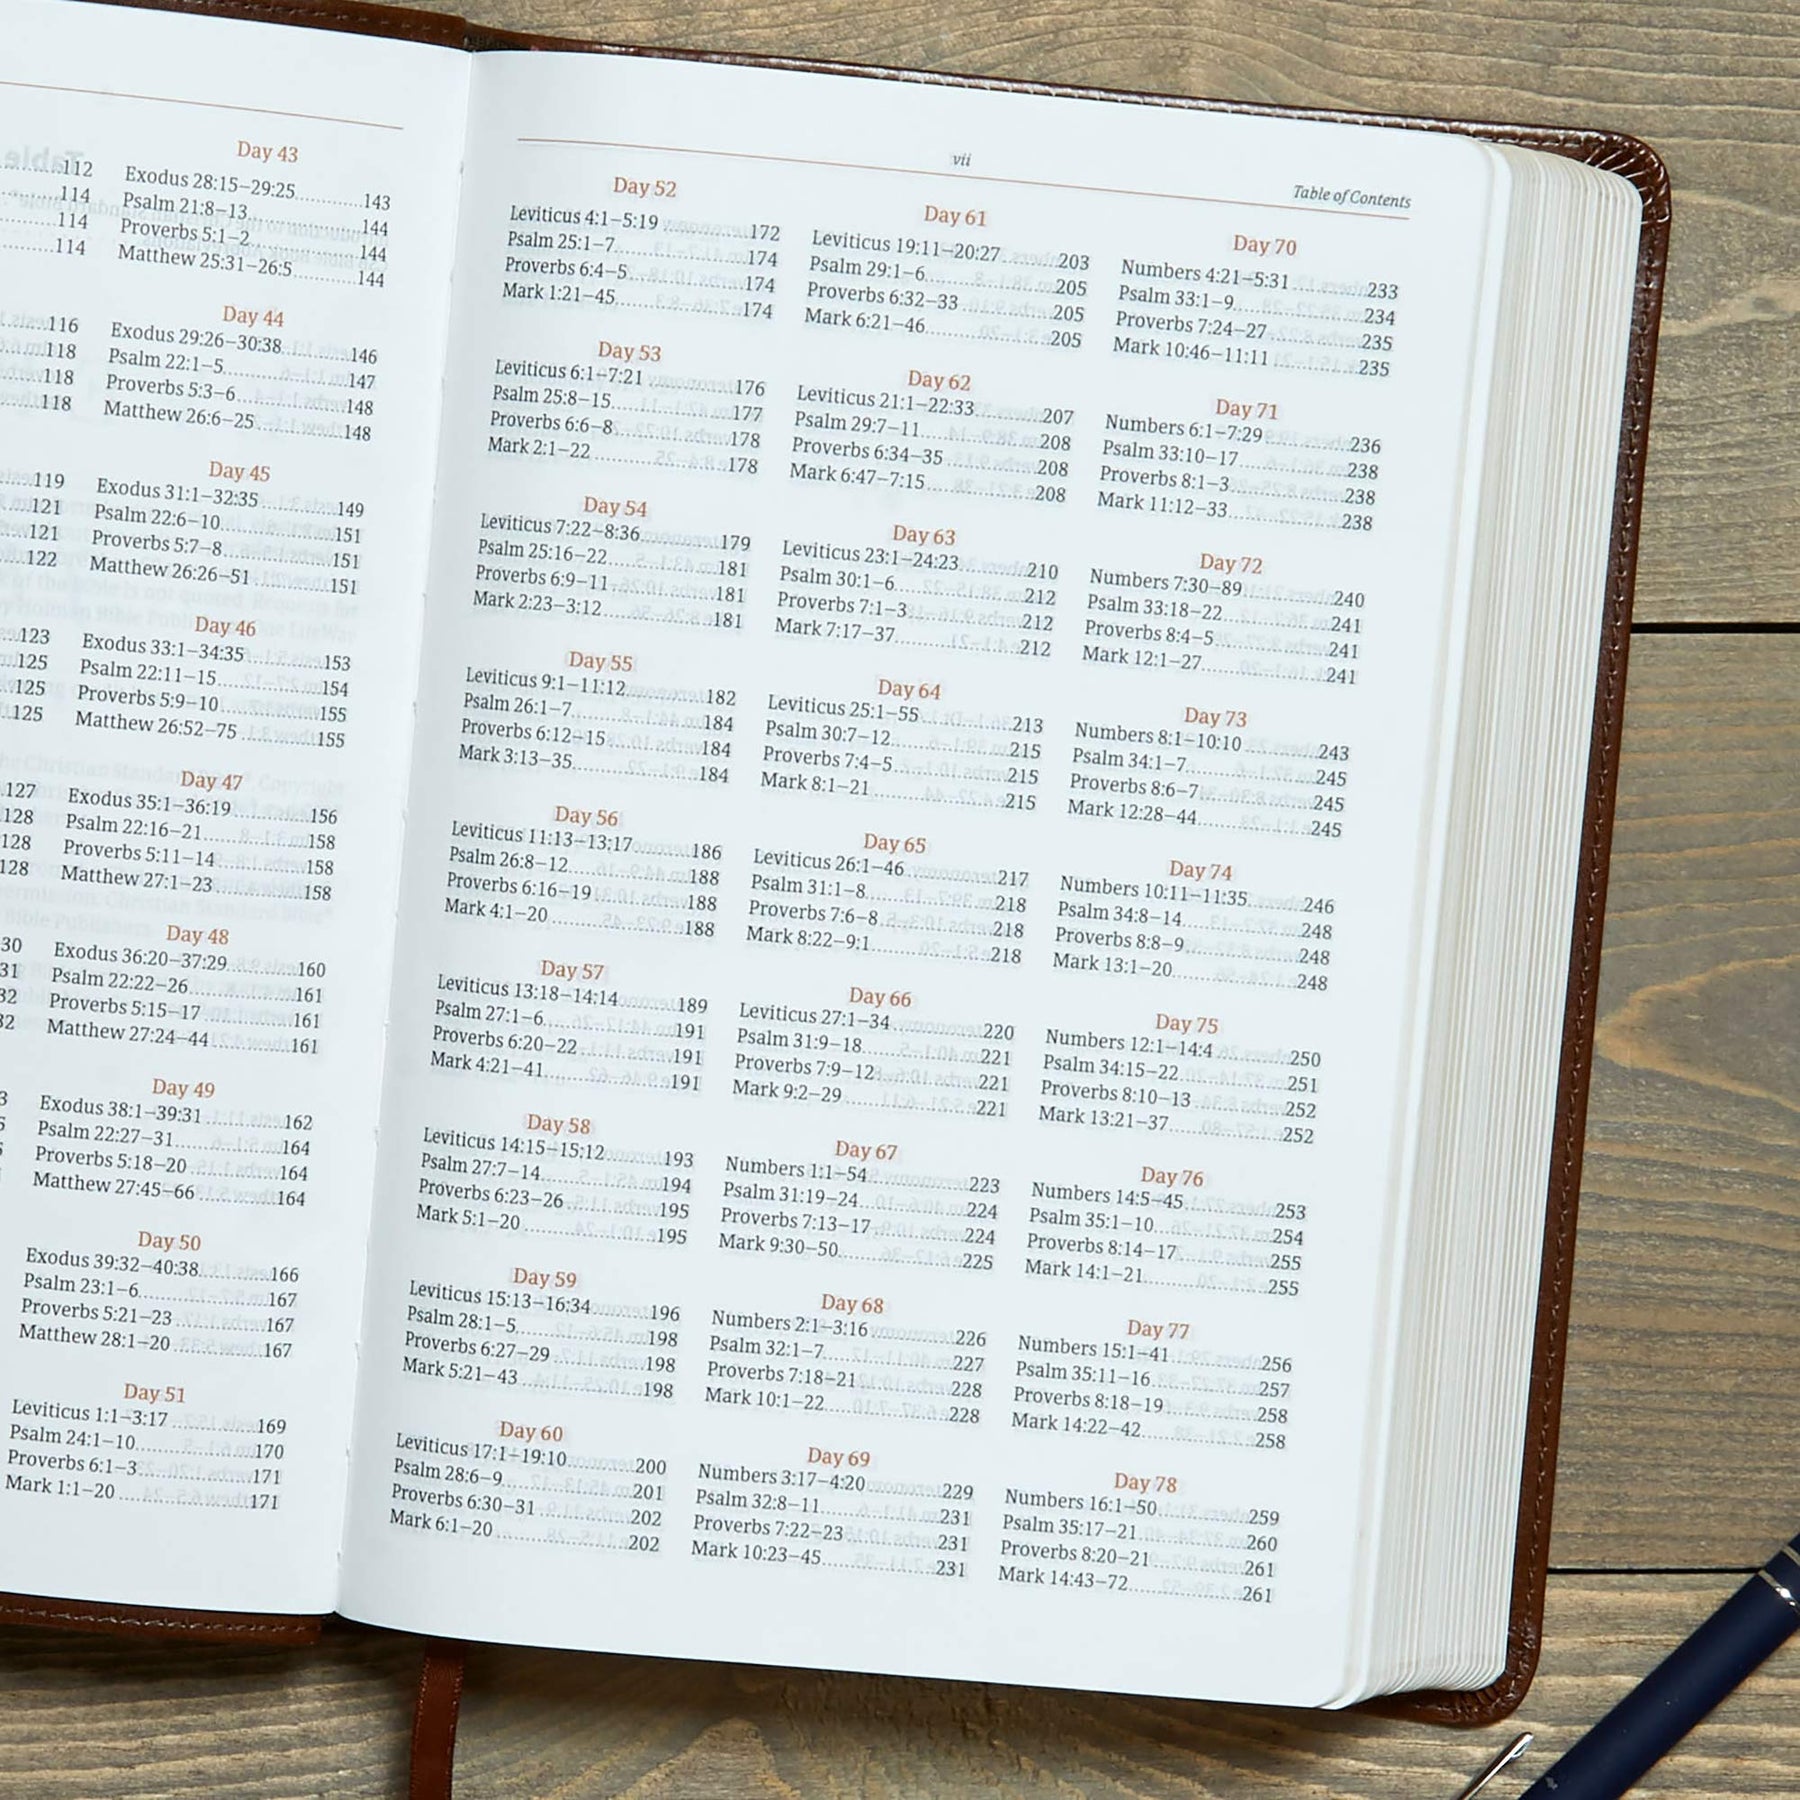 112
114
114
114
116
118
118
118
119
121
121
122
123
125
125
125
127
128
128
128
Day 43
Exodus 28:15–29:25 143
Psalm 21:8–13 144
Proverbs 5:1–2 144
Matthew 25:31–26:5 144
Day 44
Exodus 29:26–30:38 146
Psalm 22:1–5 147
Proverbs 5:3–6 148
Matthew 26:6–25 148
Day 45
Exodus 31:1–32:35 149
Psalm 22:6–10 151
Proverbs 5:7–8 151
Matthew 26:26–51 151
Day 46
Exodus 33:1–34:35 153
Psalm 22:11–15 154
Proverbs 5:9–10 155
Matthew 26:52–75 155
Day 47
Exodus 35:1–36:19 156
Psalm 22:16–21 158
Proverbs 5:11–14 158
Matthew 27:1–23 158
Day 48
Exodus 36:20–37:29 160
Psalm 22:22–26 161
Proverbs 5:15–17 161
Matthew 27:24–44 161
Day 49
Exodus 38:1–39:31 162
Psalm 22:27–31 164
Proverbs 5:18–20 164
Matthew 27:45–66 164
Day 50
Exodus 39:32–40:38 166
Psalm 23:1–6 167
Proverbs 5:21–23 167
Matthew 28:1–20 167
Day 51
Leviticus 1:1–3:17 169
Psalm 24:1–10 170
Proverbs 6:1–3 171
Mark 1:1–20 171
vii
Table of Contents
Day 52
Leviticus 4:1–5:19 172
Psalm 25:1–7 174
Proverbs 6:4–5 174
Mark 1:21–45 174
Day 53
Leviticus 6:1–7:21 176
Psalm 25:8–15 177
Proverbs 6:6–8 178
Mark 2:1–22 178
Day 54
Leviticus 7:22–8:36 179
Psalm 25:16–22 181
Proverbs 6:9–11 181
Mark 2:23–3:12 181
Day 55
Leviticus 9:1–11:12 182
Psalm 26:1–7 184
Proverbs 6:12–15 184
Mark 3:13–35 184
Day 56
Leviticus 11:13–13:17 186
Psalm 26:8–12 188
Proverbs 6:16–19 188
Mark 4:1–20 188
Day 57
Leviticus 13:18–14:14 189
Psalm 27:1–6 191
Proverbs 6:20–22 191
Mark 4:21–41 191
Day 58
Leviticus 14:15–15:12 193
Psalm 27:7–14 194
Proverbs 6:23–26 195
Mark 5:1–20 195
Day 59
Leviticus 15:13–16:34 196
Psalm 28:1–5 198
Proverbs 6:27–29 198
Mark 5:21–43 198
Day 60
Leviticus 17:1–19:10 200
Psalm 28:6–9 201
Proverbs 6:30–31 202
Mark 6:1–20 202
Day 61
Leviticus 19:11–20:27 203
Psalm 29:1–6 205
Proverbs 6:32–33 205
Mark 6:21–46 205
Day 62
Leviticus 21:1–22:33 207
Psalm 29:7–11 208
Proverbs 6:34–35 208
Mark 6:47–7:15 208
Day 63
Leviticus 23:1–24:23 210
Psalm 30:1–6 212
Proverbs 7:1–3 212
Mark 7:17–37 212
Day 64
Leviticus 25:1–55 213
Psalm 30:7–12 215
Proverbs 7:4–5 215
Mark 8:1–21 215
Day 65
Leviticus 26:1–46 217
Psalm 31:1–8 218
Proverbs 7:6–8 218
Mark 8:22–9:1 218
Day 66
Leviticus 27:1–34 220
Psalm 31:9–18 221
Proverbs 7:9–12 221
Mark 9:2–29 221
Day 67
Numbers 1:1–54 223
Psalm 31:19–24 224
Proverbs 7:13–17 224
Mark 9:30–50 225
Day 68
Numbers 2:1–3:16 226
Psalm 32:1–7 227
Proverbs 7:18–21 228
Mark 10:1–22 228
Day 69
Numbers 3:17–4:20 229
Psalm 32:8–11 231
Proverbs 7:22–23 231
Mark 10:23–45 231
Day 70
Numbers 4:21–5:31 233
Psalm 33:1–9 234
Proverbs 7:24–27 235
Mark 10:46–11:11 235
Day 71
Numbers 6:1–7:29 236
Psalm 33:10–17 238
Proverbs 8:1–3 238
Mark 11:12–33 238
Day 72
Numbers 7:30–89 240
Psalm 33:18–22 241
Proverbs 8:4–5 241
Mark 12:1–27 241
Day 73
Numbers 8:1–10:10 243
Psalm 34:1–7 245
Proverbs 8:6–7 245
Mark 12:28–44 245
Day 74
Numbers 10:11–11:35 246
Psalm 34:8–14 248
Proverbs 8:8–9 248
Mark 13:1–20 248
Day 75
Numbers 12:1–14:4 250
Psalm 34:15–22 251
Proverbs 8:10–13 252
Mark 13:21–37 252
Day 76
Numbers 14:5–45 253
Psalm 35:1–10 254
Proverbs 8:14–17 255
Mark 14:1–21 255
Day 77
Numbers 15:1–41 256
Psalm 35:11–16 257
Proverbs 8:18–19 258
Mark 14:22–42 258
Day 78
Numbers 16:1–50 259
Psalm 35:17–21 260
Proverbs 8:20–21 261
Mark 14:43–72 261